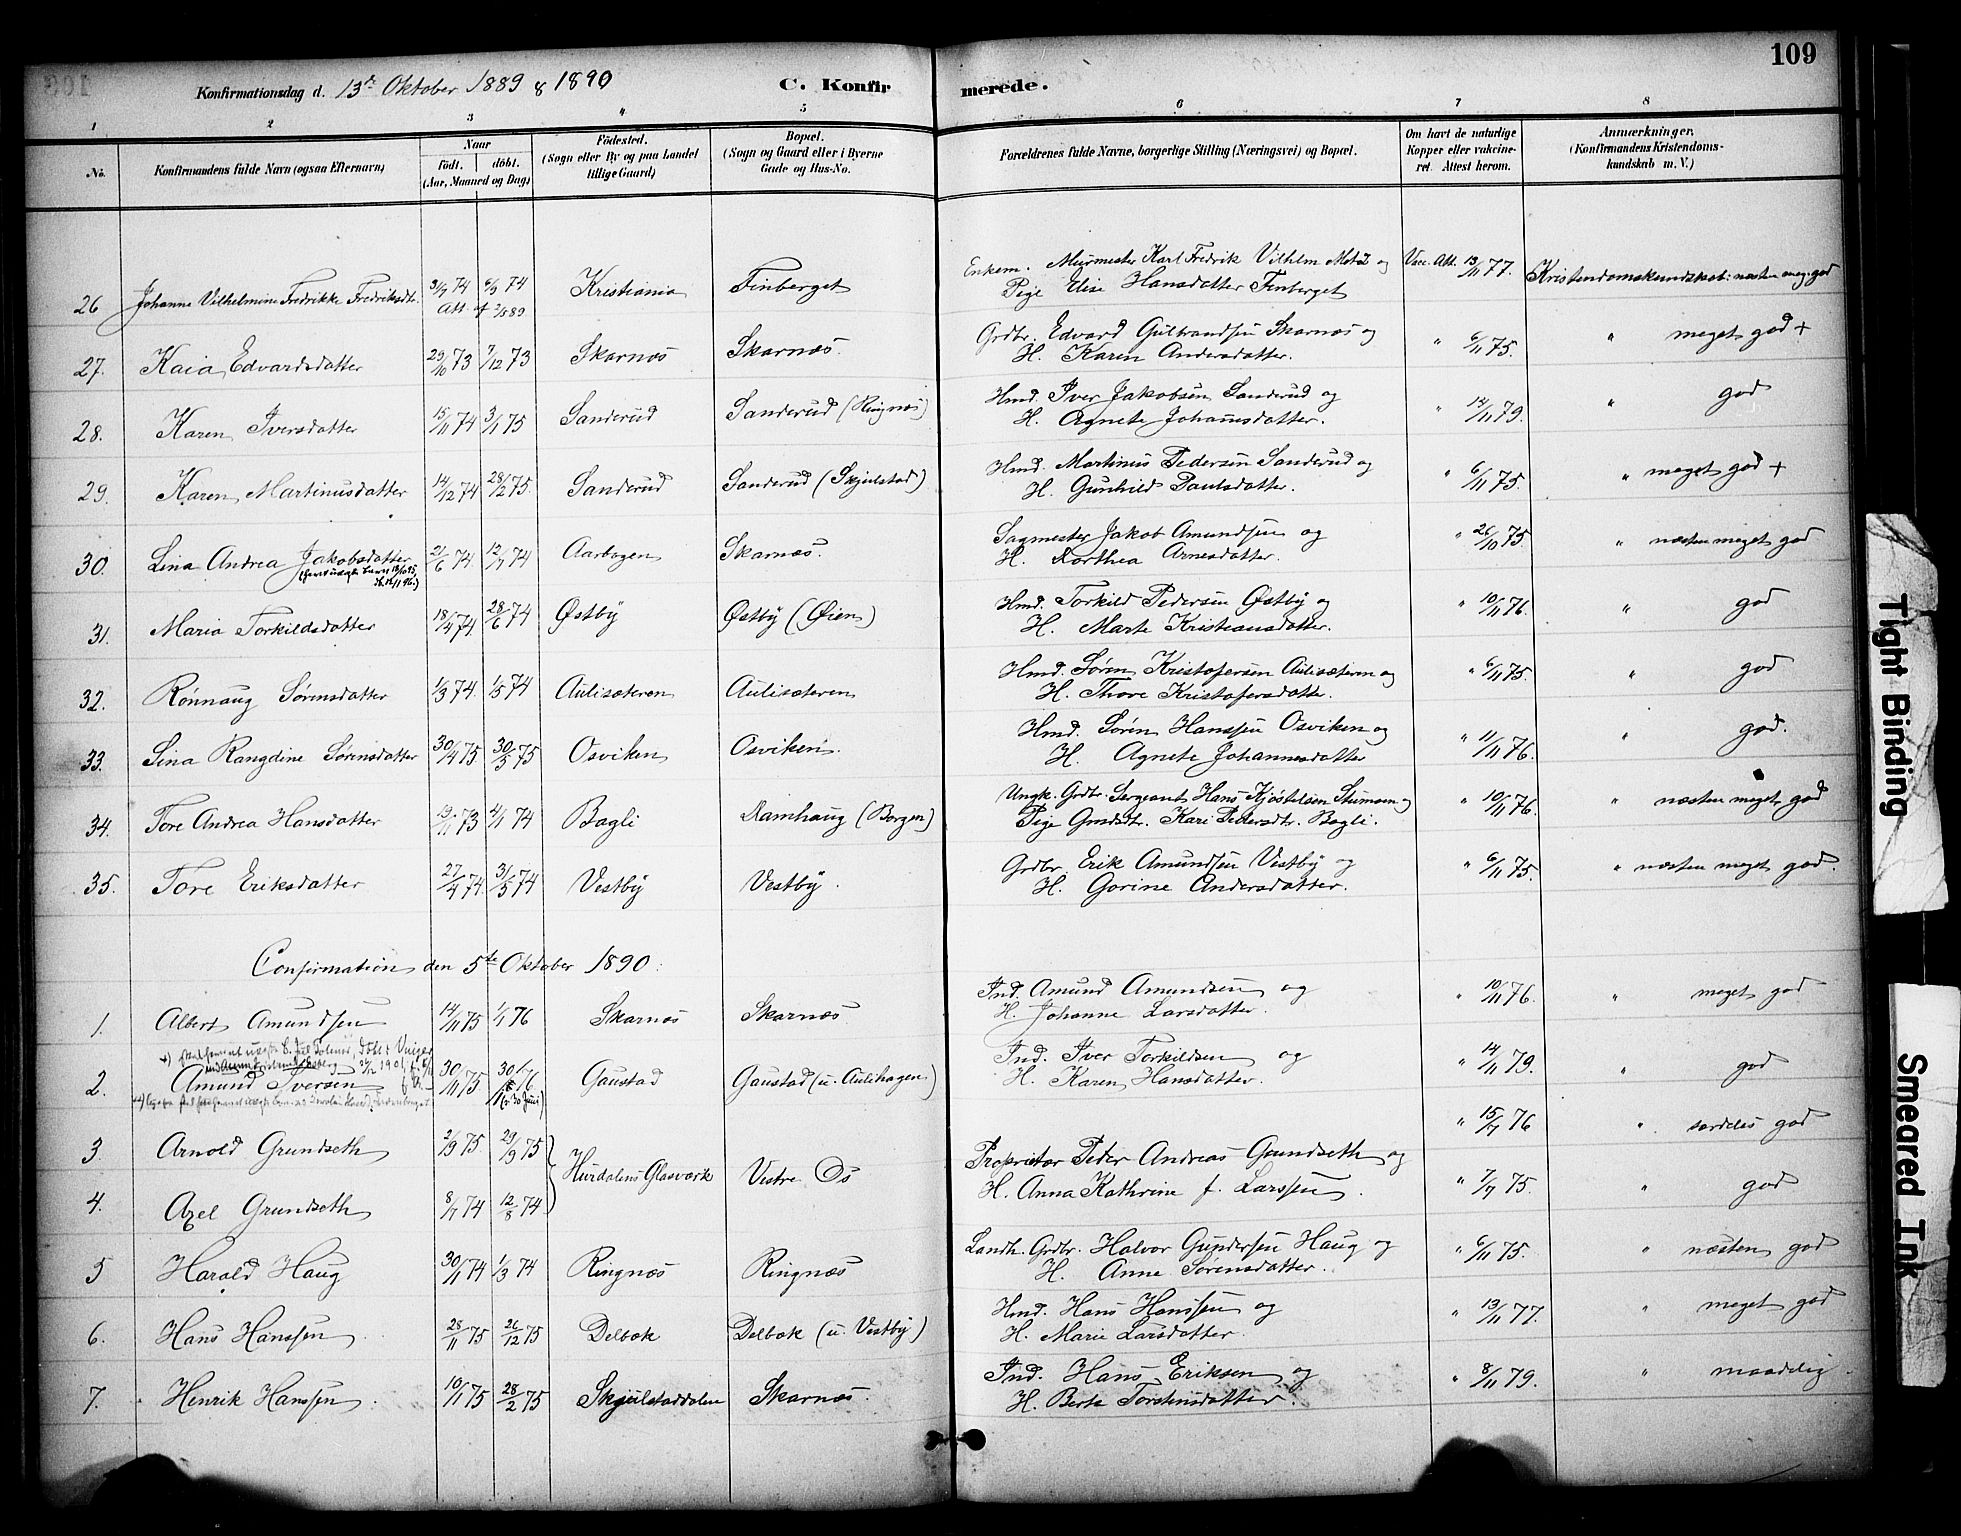 109
Konfirmationsdag d. 13de Oktober 1889 & 1890 C. Konfirmerede.
1 2 3 4 5 6 7 8
No. Konfirmandens fulde Navn (ogsaa Efternavn) Naar födt. döbt. (Aar, Maaned og Dag) Födested. (Sogn eller By og paa Landet tillige Gaard) Bopæl. (Sogn og Gaard eller i Byerne Gade og Hus-No. Forældrenes fulde Navne, borgerlige Stilling (Næringsvei) og Bopæl. Om havt de naturlige Kopper eller vakcineret. Attest herom. Anmærkninger. (Konfirmandens Kristendomskundskab m. V.)
26 Johanne Vilhelmine Fredrikke Fredriksdtr. 3/7 74 6/9 74 Kristiania Finberget Enkem. Murmester Karl Fredrik Vilhelm og Vac. Att. 13/11 77. Kristendomskundskab: næsten meg. god
Att. af Pige Elise Hansdatter Finberget
27. Kaia Edvardsdatter 29/10 73 7/12 73 Skarnæs Skarnæs. Grdbr. Edvard Gulbrandsen Skarnæs og " 6/11 75. " meget god +
H. Karen Andersdatter.
28. Karen Iversdatter 15/11 74 3/1 75 Sanderud Sanderud (Ringnæs) Hmd. Iver Jakobsen Sanderud og " 14/11 79. " god
H. Agnete Johannesdatter.
29. Karen Martinusdatter 14/12 74 28/2 75. Sanderud Sanderud (Skjulstad) Hmd. Martinus Pedersen Sanderud og " 6/11 75. " meget god +
H. Gunhild Paulsdatter.
30. Lina Andrea Jakobsdatter 21/6 74 12/7 74 Aarbogen Skarnæs. Sagmester Jakob Amundsen og " 26/10 75. " næsten meget god
H. Dorthea Arnesdatter.
31. Maria Torkildsdatter 18/4 74 28/6 74 Østby Østby (Øien) Hmd. Torkild Pedersen Østby og " 10/11 76. " god
H. Marte Kristiansdatter.
32. Rønnaug Sørensdatter 1/3 74. 1/5 74 Aulisæteren Aulisæteren Hmd. Søren Kristofersen Aulisæteren og " 6/11 75. " god
H. Thore Kristofersdatter.
33. Lina Rangdine Sørensdatter 30/4 75 30/5 75 Osviken Osviken. Hmd. Søren Hanssen Osviken og " 11/11 76. " god.
H. Agnete Johannesdatter
34. Tore Andrea Hansdatter 13/11 73 4/1 74 Bagli Ramhaug (Borgen) Ungk. Grdbr. Sergeant Hans Kjøstelsen og " 10/11 76. " næsten meget god
Pige Grndsdtr. Kari Pedersdtr. Bagli.
35. Tore Eriksdatter 27/4 74 31/5 74 Vestby Vestby. Grdbr. Erik Amundsen Vestby og " 6/11 75. " næsten meget god.
H. Gorine Andersdatter.
Confirmation den 5te Oktober 1890.
1. Albert Amundsen 14/11 75 1/1 76 Skarnæs Skarnæs Ind. Amund Amundsen og " 10/11 76. " meget god
H. Johanne Larsdatter.
2. Amund Iversen 30/11 75 30/1 76 Gaustad Gaustad (u. Aulihagen) Ind. Iver Torkildsen og " 14/11 79. " god
H. Karen Hansdatter.
3. Arnold Grundseth 2/9 75 29/9 75 Hurdalens Glasværk Vestre Os Proprietær Peder Andreas Grundseth og " 15/7 76 " særdeles god
4. Axel Grundseth 8/7 74 12/8 74 H. Anna Kathrine f. Larssen. " 7/7 75. " god
5 Harald Haug 30/1 74 1/3 74 Ringnæs Ringnæs Landh. Grdbr. Halvor Gundersen Haug og " 6/11 75. " næsten god
H. Anne Sørensdatter.
6. Hans Hanssen 28/11 75 26/12 75 Delbæk Delbæk (u. Vestby) Hmd. Hans Hanssen og " 13/11 77. " meget god
H. Marie Larsdatter.
7. Henrik Hanssen. 10/1 75 28/2 75 Skjulstaddalen Skarnæs. Ind. Hans Eriksen og " 8/11 79. " maadelig
H. Berte Torstensdatter.
Tight Binding
Smeared Ink